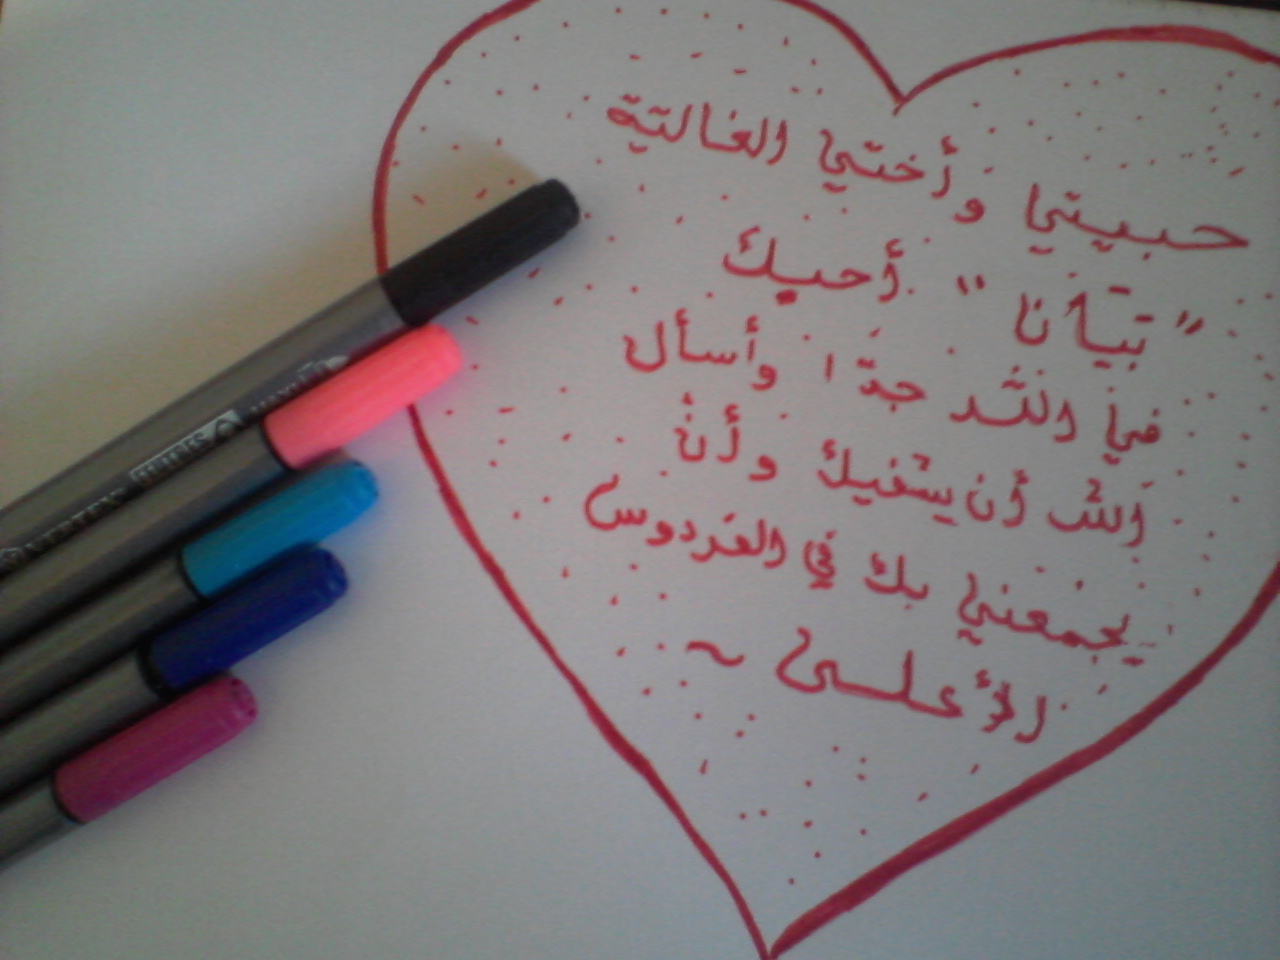 حبيبتي وأختي الغالية
"تيانا" أحبك
في الله جدا وأسأل
الله أن يشفيك وأن
يجمعني بك في الفردوس
الأعلى ~